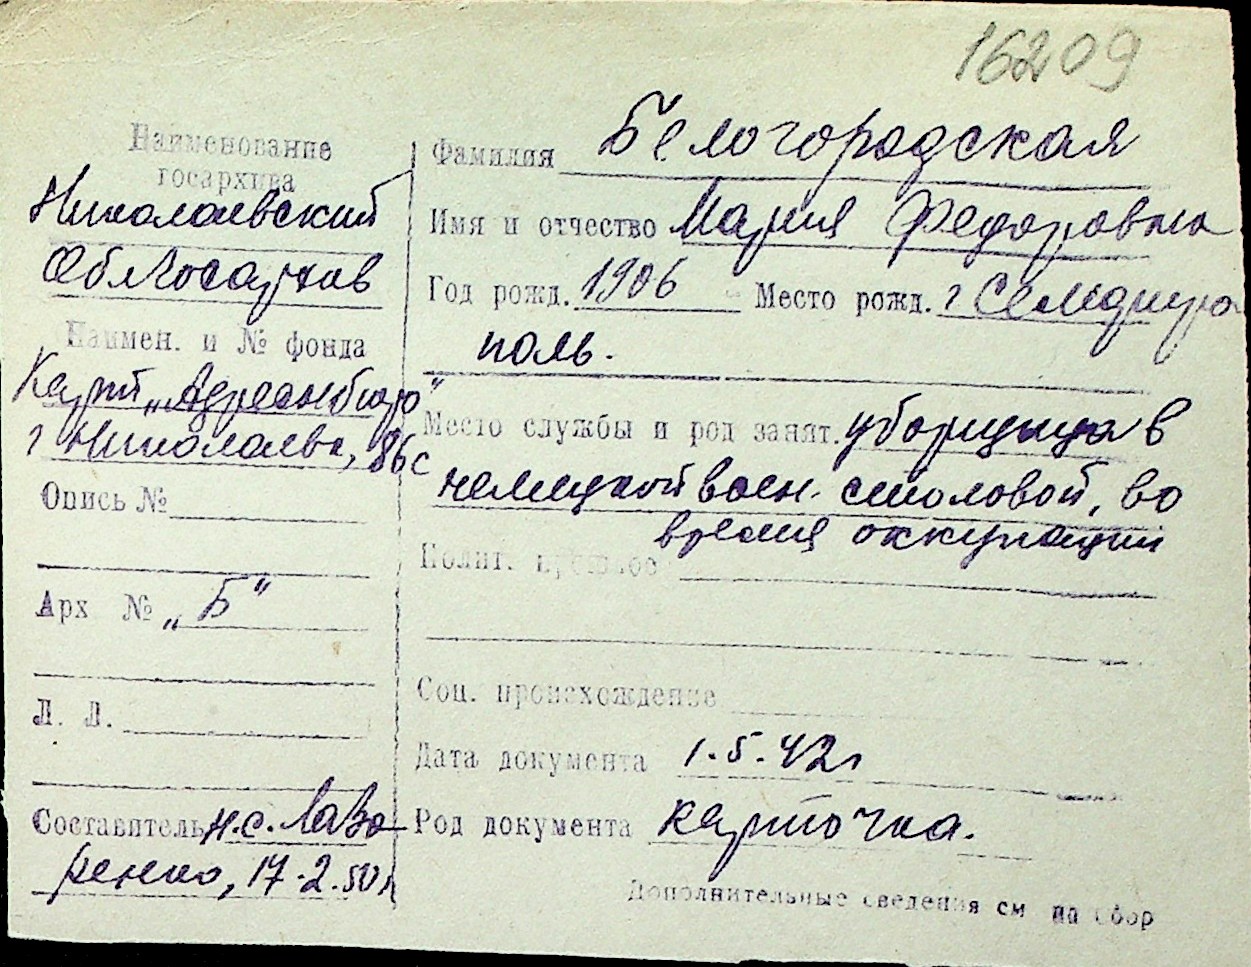 16209
Наименование
госархива
Николаевский
Облгосархив
Наимен. и № фонда
Карт. „Адресн бюро"
г Николаева, 86с
Опись №
Арх № „Б"
Л. Л.
Составитель Н.С. Лаза
ренко, 17.2.50 г
Фамилия Белогородская
Имя и отчество Мария Федоровна
Год рожд. 1906 Место рожд. г Семфиро
поль.
Место службы и род занят. уборщица в
немецкой воен. столовой, во
время оккупации
Полит.
Соц. происхождение
Дата документа 1.5.42г
Род документа карточка.
Дополнительные сведения см на обор